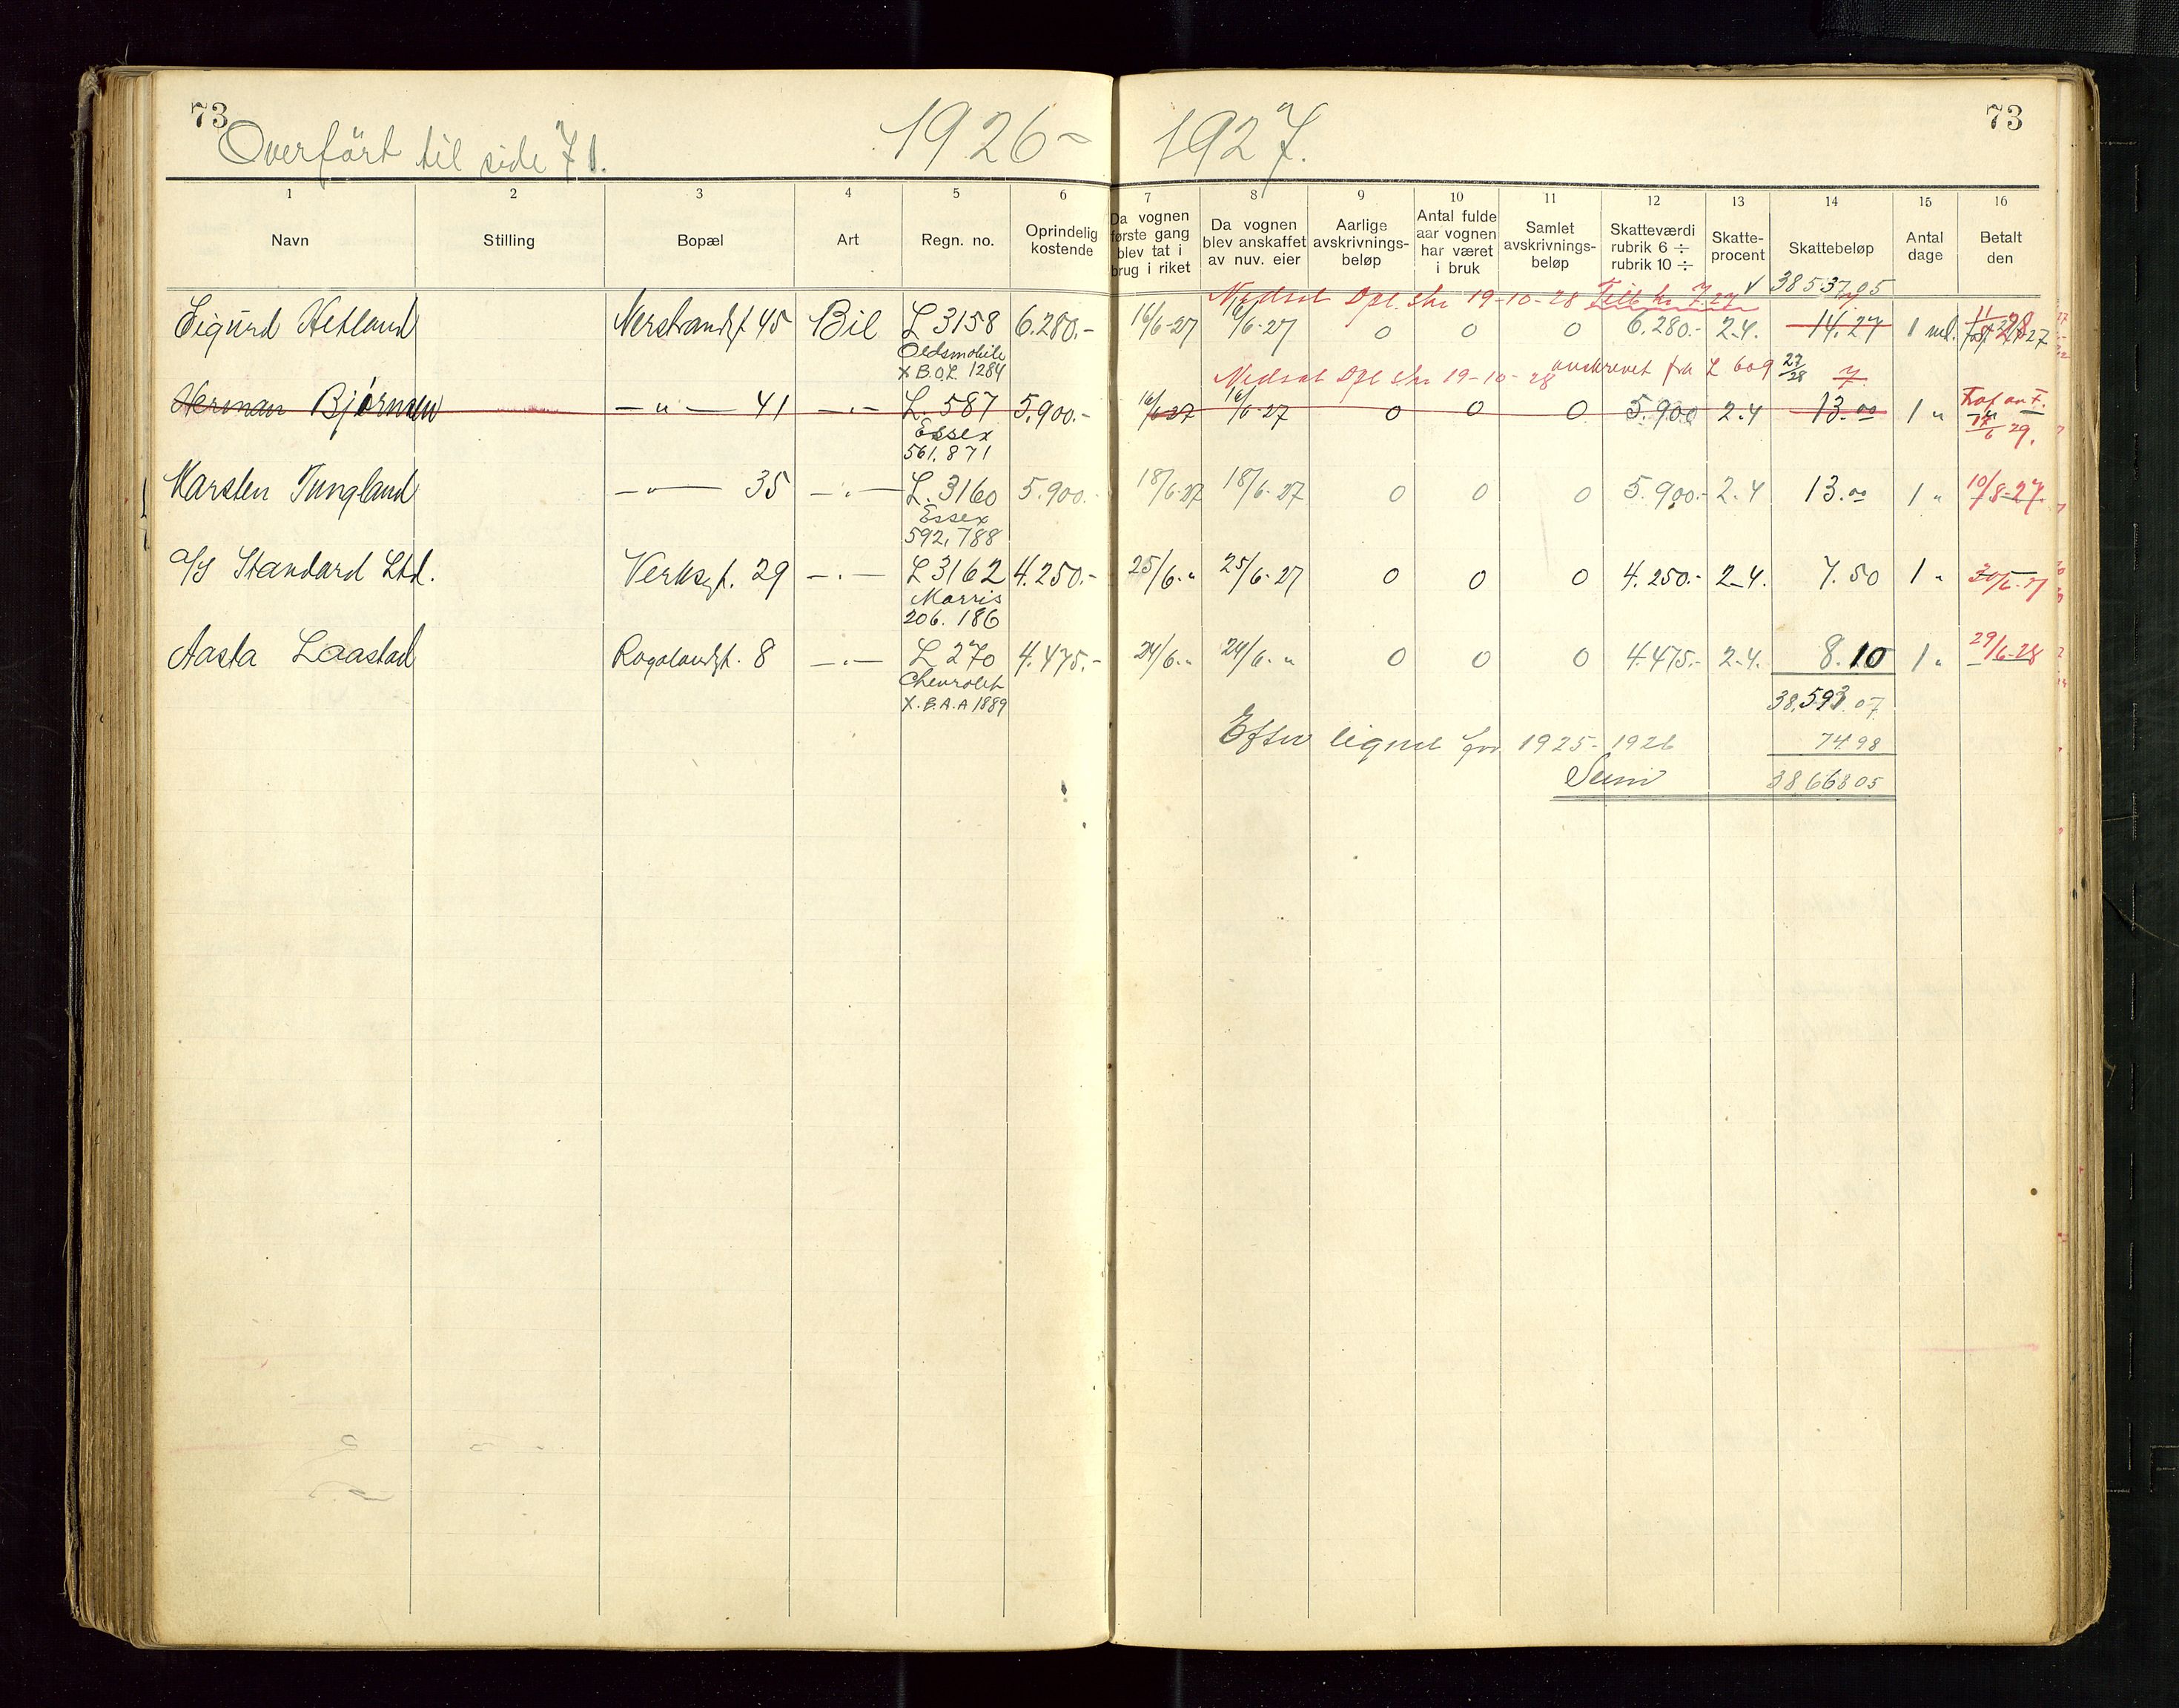 73 73
Overført til side 71. 1926- 1927.
1 2 3 4 5 6 7 8 9 10 11 12 13 14 15 16
Navn Stilling Bopæl Art Regn. no. Oprindelig kostende Da vognen første gang blev tat i brug i riket Da vognen blev anskaffet av nuv. eier Aarlige avskrivnings-beløp Antal fulde aar vognen har været i bruk Samlet avskrivnings-beløp Skatteværdi rubrik 6 ÷ rubrik 10 ÷ Skatte-procent Skattebeløp Antal dage Betalt den
38537,05
Nedsat Dpl. skr 19-10-28 Tilb kr 7.27
Sigurd Hetland Nerstrandgt 45 Bil L 3158 6.280.- 16/6-27 16/6-27 0 0 0 6.280.- 2.4. 14.27 1 md.
Oldsmobile
X B.O.L. 1284
Nedsat Dpl skr 19-10-28 avskrevet fra L 609 27/28 7
Herman Bjørnsen -"- 41 -"- L. 587 5.900.- 16/6-27 16/6-27 0 0 0 5.900 2.4 13.00 1 "
Essex
561.871
Karsten Tungland -"- 35 -"- L. 3160 5.900.- 18/6-27 18/6-27 0 0 0 5.900.- 2.4 13.00 1 " 10/8-27.
Essex
592,788
A/S Standard Ltd. Verksgt. 29 -"- L 3162 4.250.- 25/6-" 25/6-27 0 0 0 4.250.- 2.4. 7.50 1 " 30/6-27
Morris
206.186
Aasta Laastad Rogalandgt. 8 -"- L 270 4.475.- 24/6-" 24/6-" 0 0 0 4.475.- 2.4. 8.10 1 " 29/6-28
Chevrolet
X.B.A.A 1889
38,593.07
Efter lignet for 1925-1926 74.98
Sum 38668 05